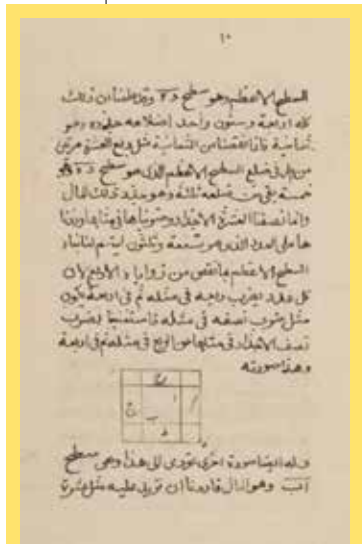 ١٥
السطح الاعظم وهو سطح د ه وقد علمنا ان ذلك
كله اربعة وستون واحد اضلاعه جذره وهو
ثمانية فاذا نقصنا من الثمانية مثل ربع العشرة مرتين
من طرفي ضلع السطح الاعظم الذي هو سطح د ه وهو
خمسة بقي من ضلعه ثلثة وهو جذر ذلك المال
وانما نصفنا العشرة الاجذار وضربناها في مثلها وزدنا
ها على العدد الذي هو تسعة وثلثون ليتم لنا بناء
السطح الاعظم بما نقص من زواياه الاربع لان
كل عدد يضرب ربعه في مثله ثم في اربعة يكون
مثل ضرب نصفه في مثله فاستغنينا بضرب
نصف الاجذار في مثلها عن الربع في مثله ثم في اربعة
وهذا صورته
ح
ا
ب
د
وله ايضا صورة اخرى تؤدي الى هذا وهي سطح
اب وهو المال فاردنا ان نزيد عليه مثل عشرة